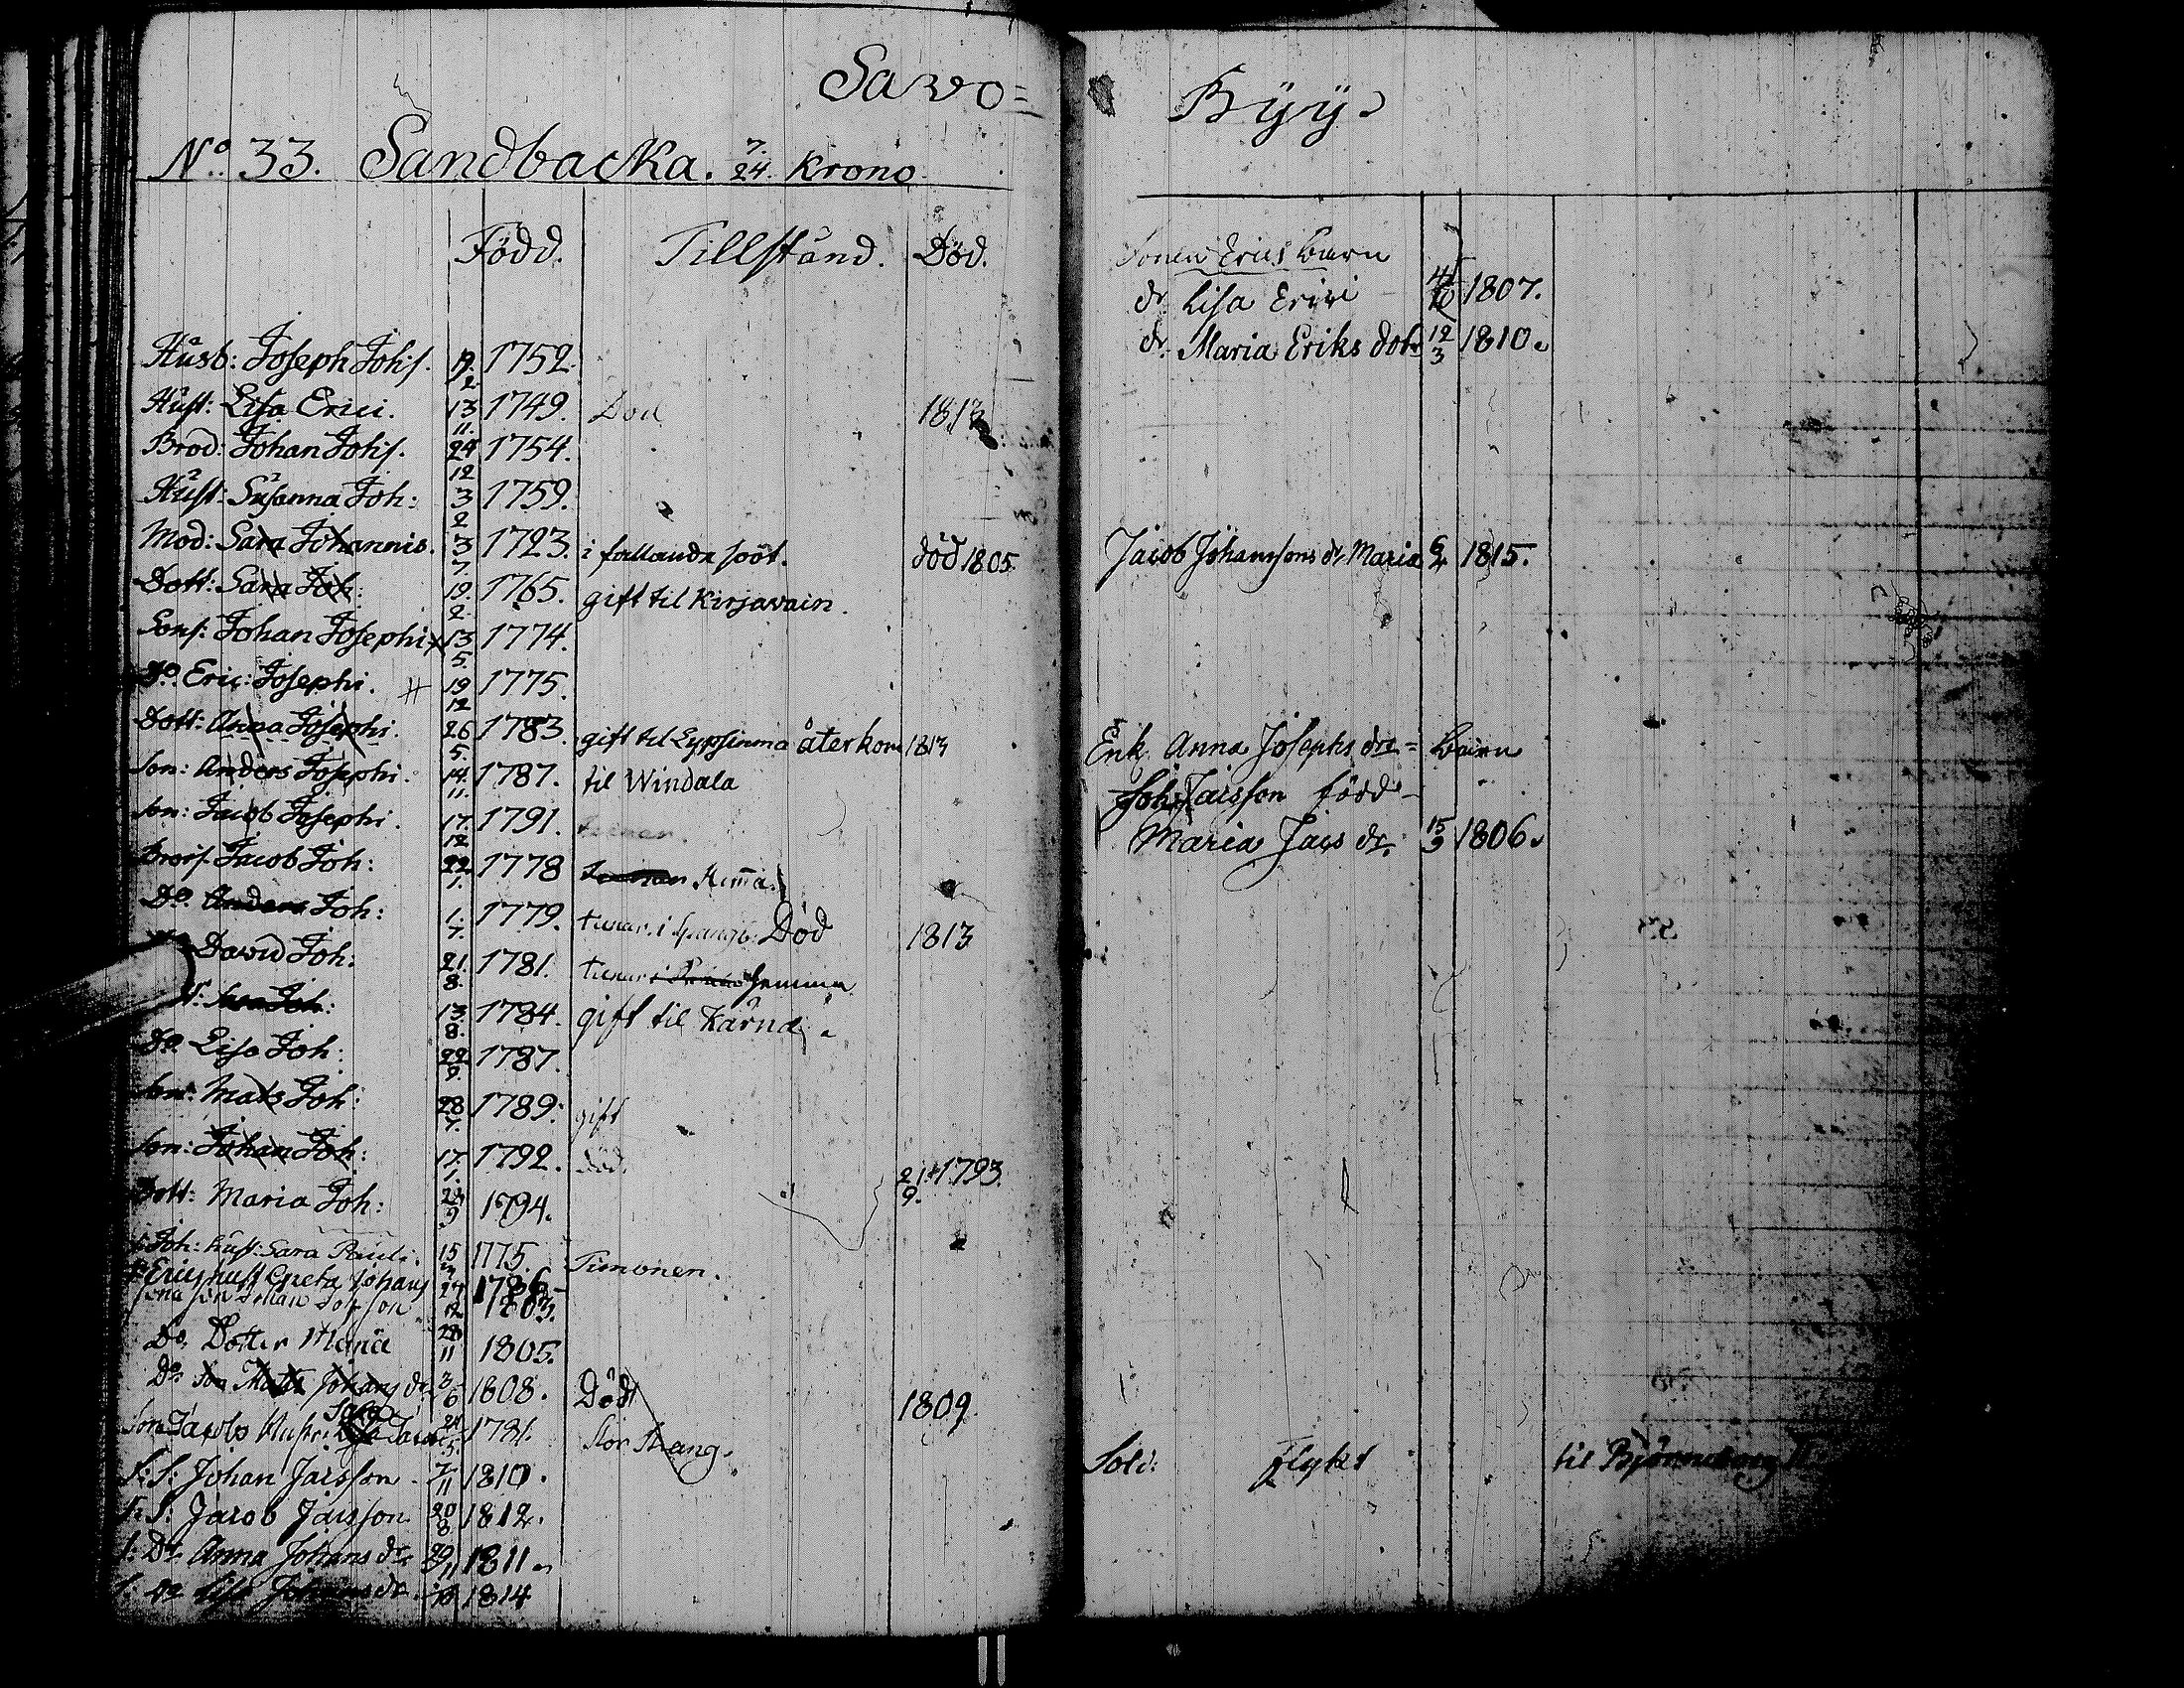 Sawo=
No. 33. Sandbacka. 7/24. Krono
Född. Tillstånd. Död.
Husb: Joseph Johs. 1752.
Hust: Lisa Erici. 13/11. 1749. Död 1813
Brod: Johan Johs. 24/12 1754.
Hust: Susanna Joh: 3/2 1759.
Mod: Sara Johannis. 3/7. 1723. i fallande soot. död 1805.
Dott: Sara Joh: 19./2. 1765. gift til Kirjavain.
Sons: Johan Josephi 13/5. 1774.
Do. Eric: Josephi. # 19/12 1775.
Dott: Anna Josephi. 26/5. 1783. gift til Lypsinma återkom 1813
Son: Anders Josephi. 14./11. 1787. til Windala
Son: Jacob Josephi. 17./12 1791.
Jacob Joh: 22/1. 1778
Do. Anders Joh: 1./7. 1779. Död 1813
David Joh: 21./8. 1781. hemma
Joh: 13./8. 1784. gift til Kärnä.
Do. Lisa Joh: 22/9. 1787.
Son: Mats Joh: 28/7. 1789. gift
Son: Johan Joh: 17./1. 1792. död. 21./9. 1793.
Dott: Maria Joh: 1794.
Joh: hust: Sara Pauli. 15 1775. Timonen.
Erics hust Greta Johans 24 1786
son Johan Johsson 12 1803.
Do. Dotter Maria 28/11 1805.
Do. Johans dr 3/6 1808. Död 1809.
Son Jacobs Hustru Sara 1781. Stor Stang.
S: S: Johan Jacsson 7/11 1810.
S: S: Jacob Jacsson 20/8 1812.
S: Dr. Anna Johans dr. 29/11 1811.
Lisa Johans dr. 1814
Byy.
Sonen Erics barn
dr Lisa Erici 1807.
dr. Maria Eriks dotr 12/3 1810.
Jacob Johanssons dr Maria 6/2 1815.
Enk. Anna Josephs dr = barn
Joh: Jacsson född
Maria Jacs dr. 15/9 1806.
Sold: Flykt til Björneborg